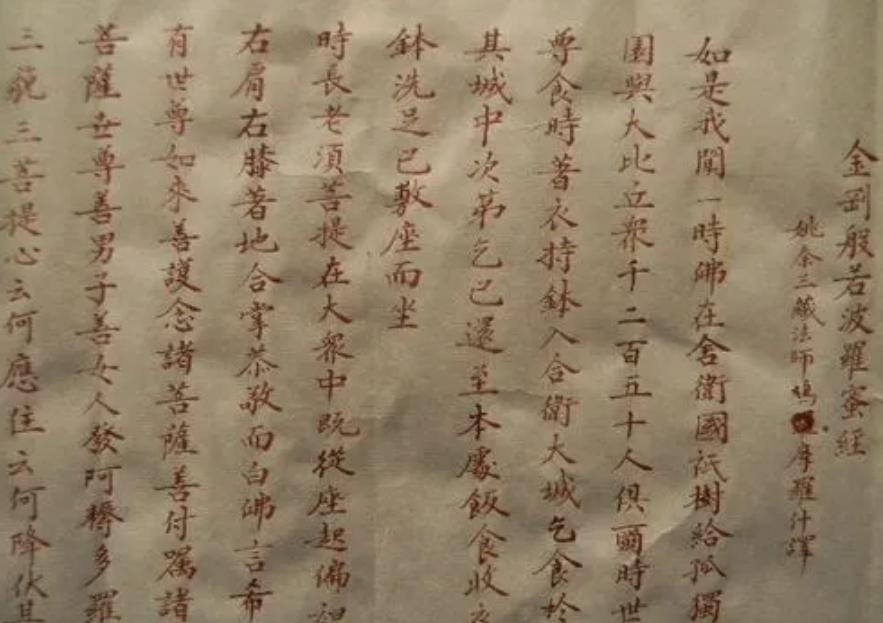 金剛般若波羅蜜經
姚秦三藏法師鳩摩羅什譯
如是我聞一時佛在舍衛國祇樹給孤獨
園與大比丘眾千二百五十人俱爾時世
尊食時著衣持鉢入合衛大城乞食於
其城中次第乞已還至本處飯食收衣
鉢洗足已敷座而坐
時長老須菩提在大眾中既從座起偏袒
右肩右膝著地合掌恭敬而白佛言希
有世尊如來善護念諸菩薩善付囑諸
菩薩世尊善男子善女人發阿耨多羅
三藐三菩提心云何應住云何降伏其